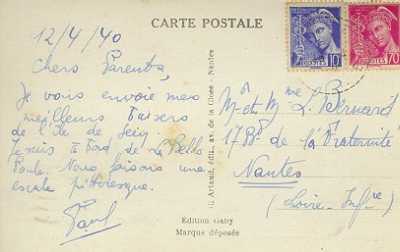 CARTE POSTALE
12/4/40
Chers Parents,
Je vous envoie mes
meilleurs Baisers
de l'Ile de Sein
Je suis à Bord de La Belle
Poule. Nous faisons une
escale pittoresque.
Paul
G. Artaud, édit., av. de la Close, Nantes
POSTES 10c
POSTES 70c
Mr et Mme L. Bernard
17 Bd de la Fraternité
Nantes
(Loire-Infre)
Edition Gaby
Marque déposée